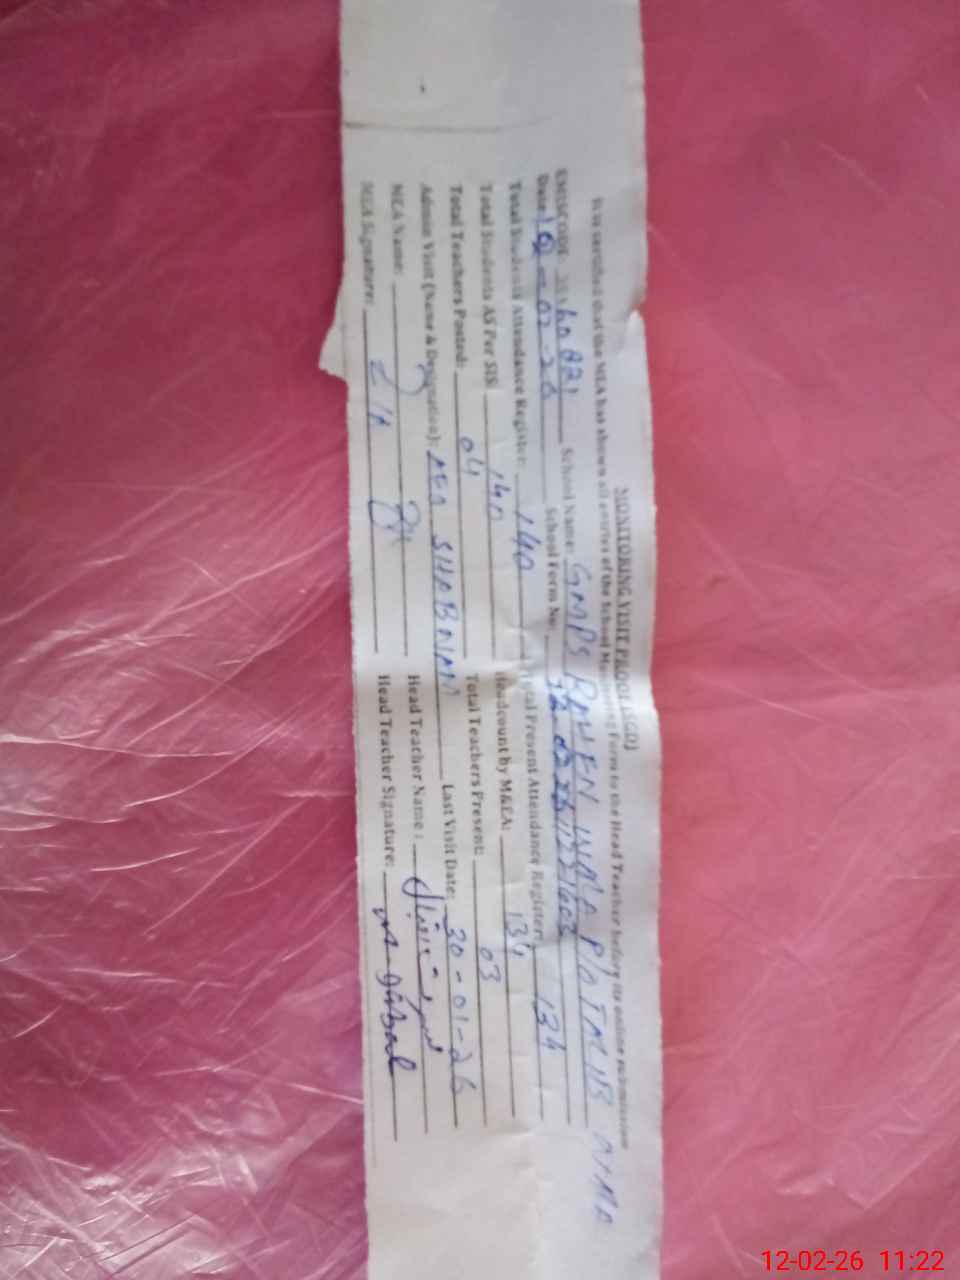 MONITORING VISIT PROOF (SGD)
It is certified that the MEA has shown all entries of the School Monitoring Form to the Head Teacher before its online submission
EMISCODE: School Name: GMPS WALA P/O
Date: 12-02-26 School Form No:
Total Students Attendance Register: 140 Total Present Attendance Register: 134
Total Students AS Per SIS: 140 Headcount by M&EA: 134
Total Teachers Posted: 04 Total Teachers Present: 03
Admin Visit (Name & Designation): AEO SHABNAM Last Visit Date: 30-01-26
MEA Name: Head Teacher Name:
MEA Signature: Head Teacher Signature:
12-02-26 11:22